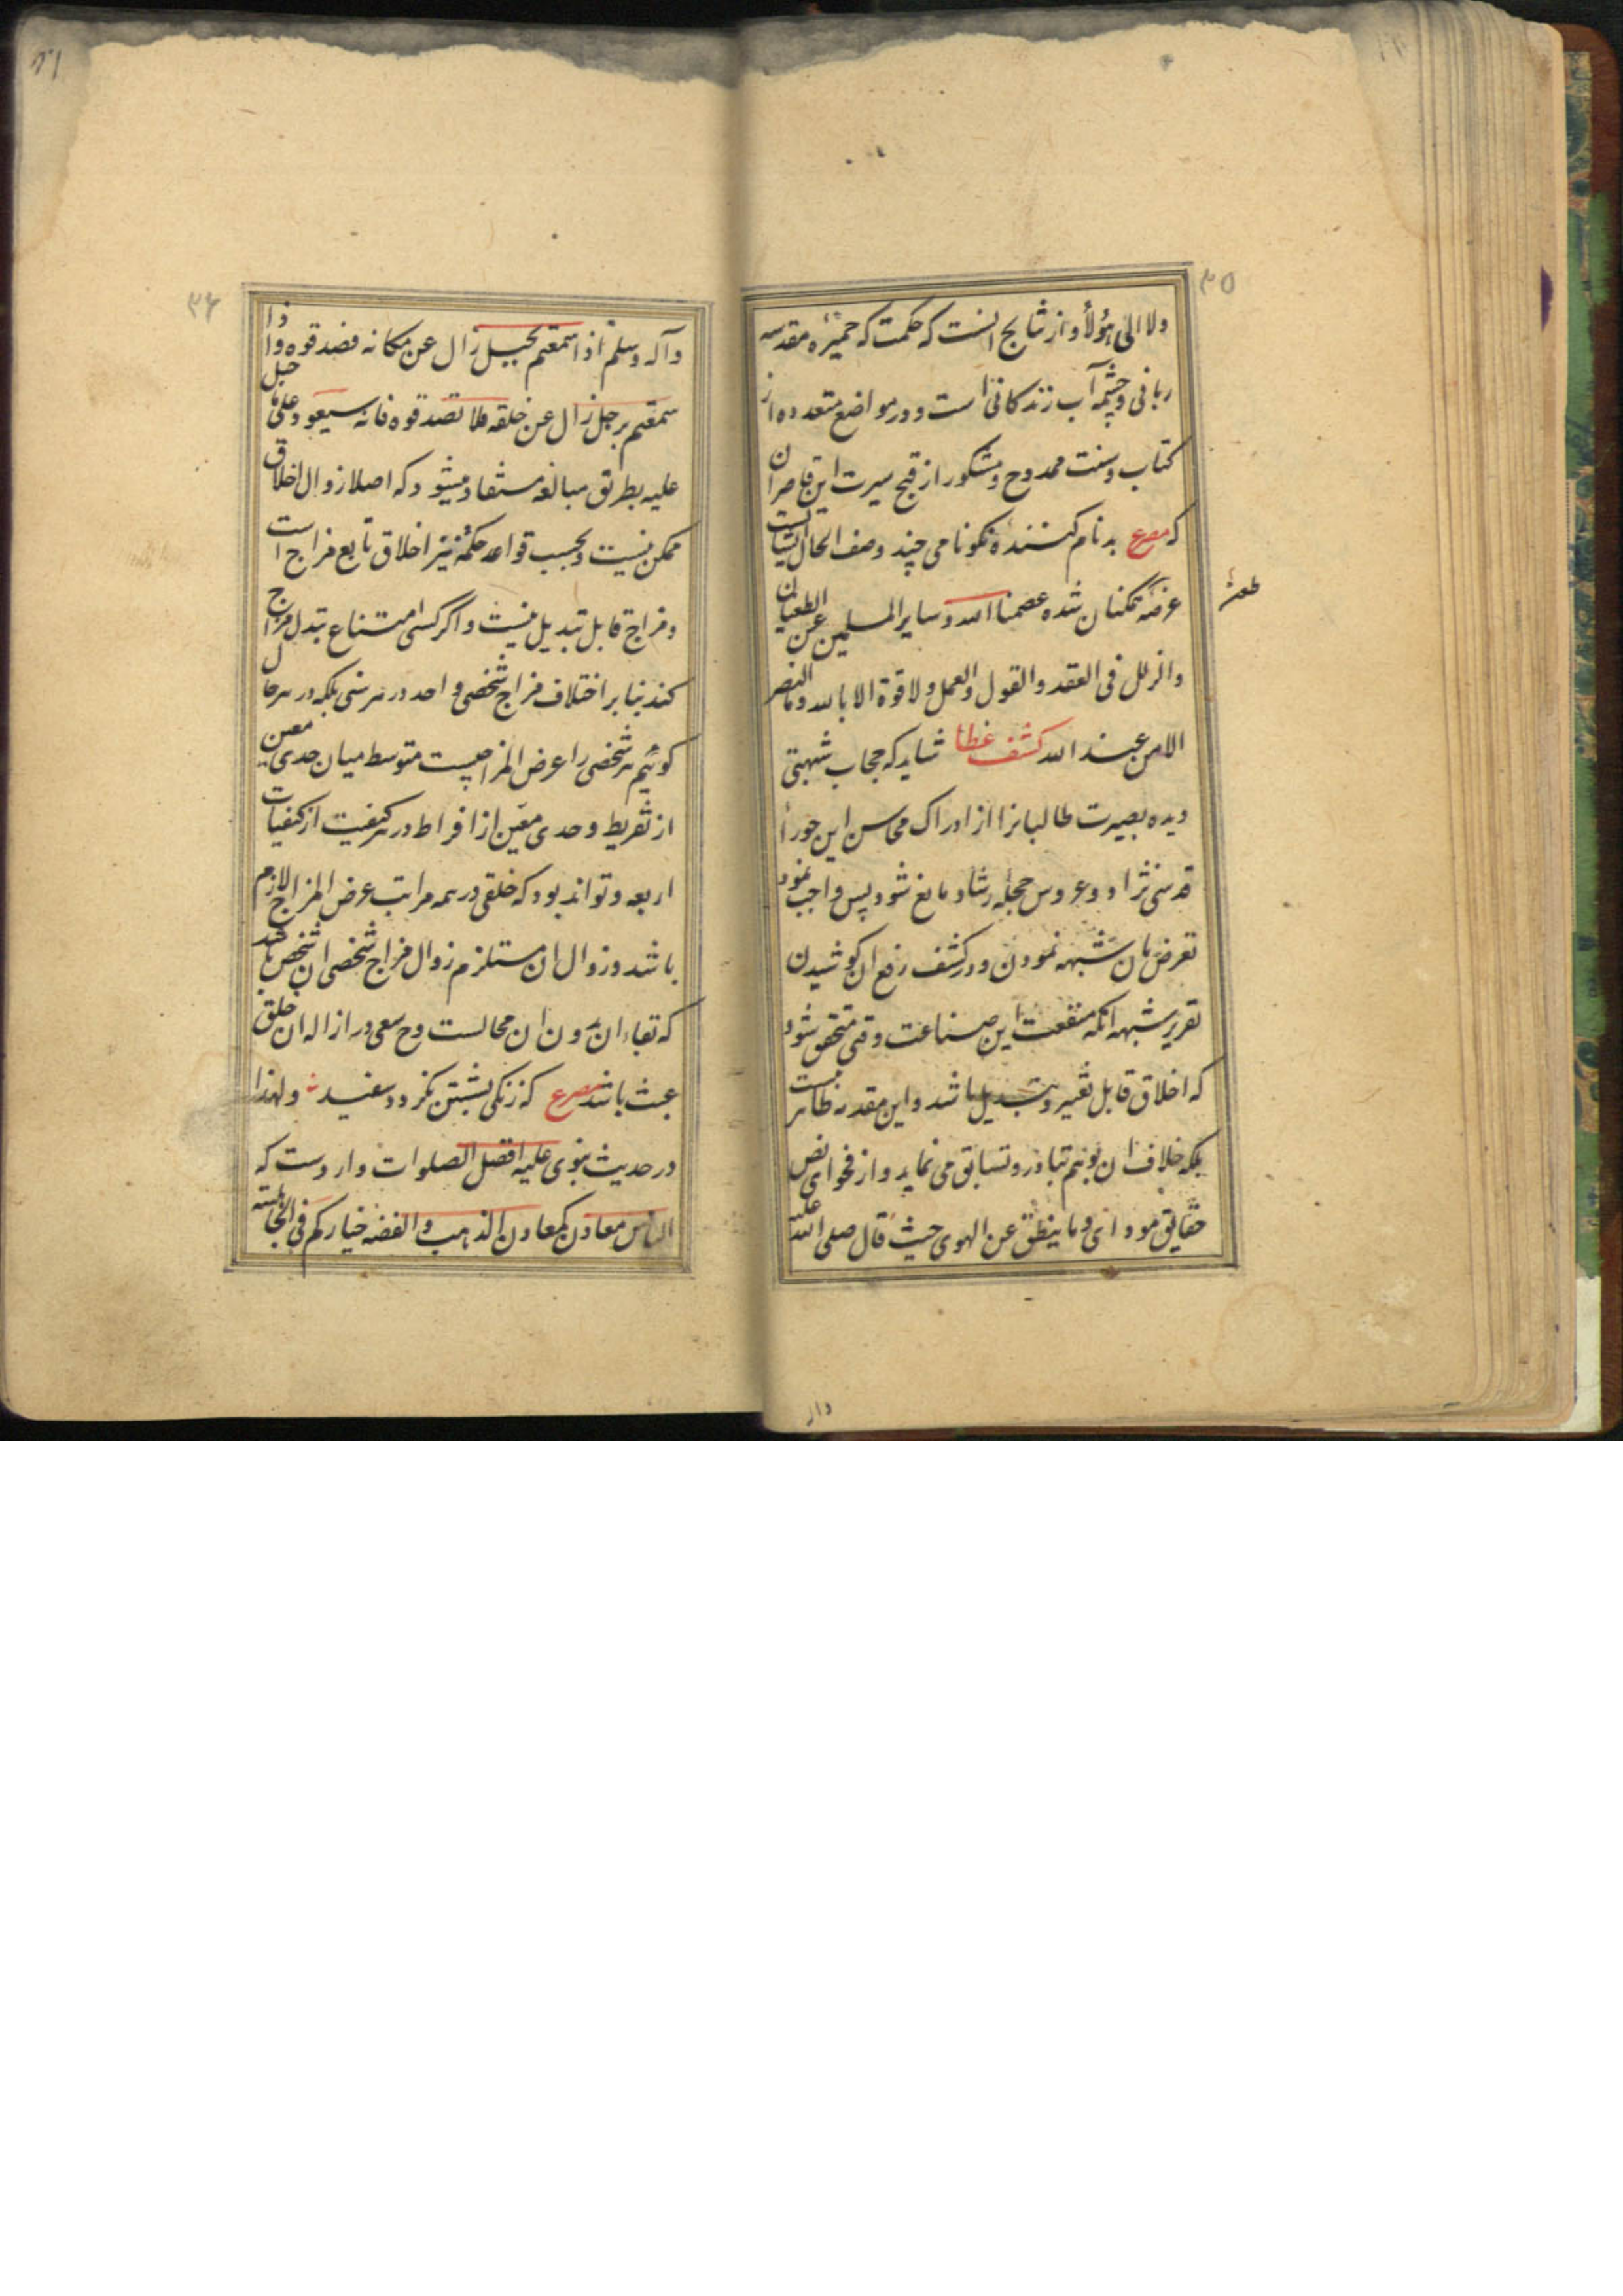 ۳۵
ولا الی هؤلاء و از نتایج آنست که حکمت که خمیره مقدسه
ربانی و چشمه آب زندکانی است و در مواضع متعدده از
کتاب و سنت ممدوح و مشکور از قبح سیرت این قاصران
که مصرع بدنام کننده نکونامی چند وصف الحال ایشانست
عرضه طعن ممکنان شده عصمنا الله و سایر المسلمین عن الطغیان
والزلل فی العقد والقول والعمل ولا قوة الا بالله وما النصر
الا من عند الله کشف غطا شاید که حجاب شبهتی
دیده بصیرت طالبانرا از ادراک محاسن این حورا
قدسی نژاد و عروس حجله رشاد مانع شود پس واجب نمود
تعرض بان شبهه نمودن و در کشف رفع ان کوشیدن
تقریر شبهه انکه منفعت این صناعت وقتی متحقق شود
که اخلاق قابل تغییر و تبدیل باشد و این مقدمه ظاهر نیست
بلکه خلاف ان بوهم تبادر و تسابق می نماید و از فحوای نص
حقایق مودای وما ینطق عن الهوی حیث قال صلی الله علیه
وآله
۳۶
وآله وسلم اذا سمعتم بجبل زال عن مکانه فصدقوه واذا
سمعتم برجل زال عن خلقه فلا تصدقوه فانه سیعود علی ما جبل
علیه بطریق مبالغه مستفاد میشود که اصلا زوال اخلاق
ممکن نیست و بحسب قواعد حکمة نیز اخلاق تابع مزاج است
و مزاج قابل تبدیل نیست و اکر کسی امتناع تبدل مزاج
کند بنا بر اختلاف مزاج شخصی واحد در هر سنی بلکه در هر حال
کوئیم هر شخصی را عرض المزاجیست متوسط میان حدی معین
از تفریط و حدی معین از افراط در هر کیفیت از کیفیات
اربعه و تواند بود که خلقی در همه مراتب عرض المزاج لازم
باشد و زوال ان مستلزم زوال مزاج شخصی ان شخص باشد
که بقاء ان بدون ان محالست و ح سعی در ازاله ان خلق
عبث باشد مصرع که زنکی بشستن نکردد سفید و لهذا
در حدیث نبوی علیه افضل الصلوات واردست که
الناس معادن کمعادن الذهب والفضه خیارکم فی الجاهلیته